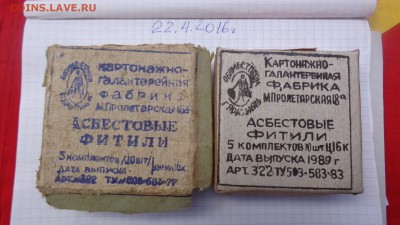 COINS.LAVE.RU
22.4.2016г
КАРТОНАЖНО-
ГАЛАНТЕРЕЙНАЯ
ФАБРИКА
М.ПРОЛЕТАРСКАЯ
АСБЕСТОВЫЕ
ФИТИЛИ
5 КОМПЛЕКТОВ
ДАТА ВЫПУСКА
АРТ. 322
КАРТОНАЖНО-
ГАЛАНТЕРЕЙНАЯ
ФАБРИКА
М.ПРОЛЕТАРСКАЯ
АСБЕСТОВЫЕ
ФИТИЛИ
5 КОМПЛЕКТОВ 10 ШТ Ц.16К
ДАТА ВЫПУСКА 1989 г
АРТ. 322 ТУ 503-583-83